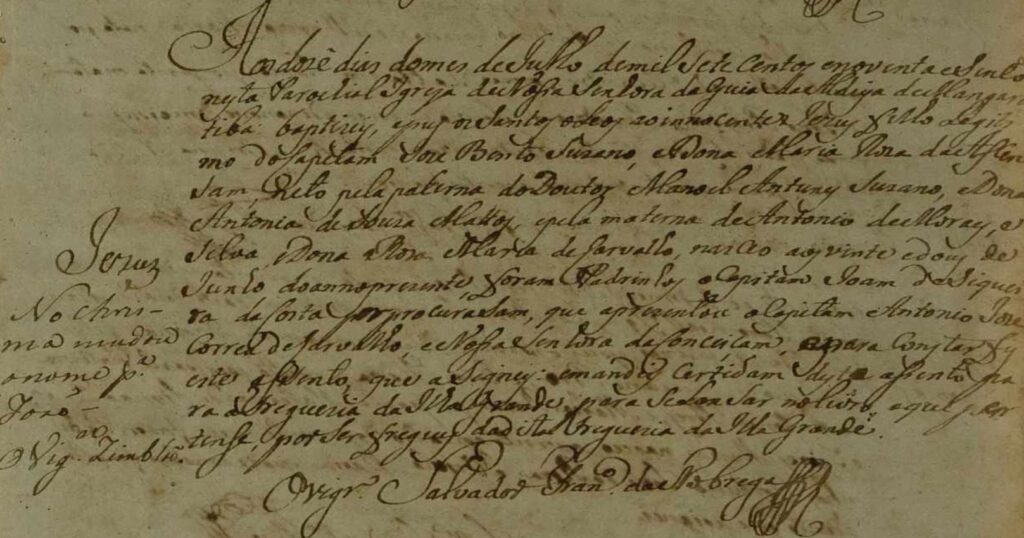 Aos dose dias do mes de Julho de mil Sete Centos e noventa e Sinco
nesta Parochial Igreja de Nossa Senhora da Guia da Aldeya de Mangara
tiba baptizey, e puz os Santos oleos ao innocente Jezuz filho Legiti
mo do Capitam José Bento Suzano, e Dona Maria Roza da Ascen
sam, Neto pela paterna do Doutor Manoel Antunes Suzano, e Dona
Antonia de Souza Mattos, e pela materna de Antonio de Moraes, e
Silva, e Dona Rosa Maria de Carvalho, nasceo aos vinte e dous de
Junho do anno presente, foram Padrinhos o Capitam Joam de Sique
ra da Costa por procurasam, que aprezentou o Capitam Antonio Joze
Correa de Carvalho, e Nossa Senhora da Conceicam, e para Constar fiz
este asento, que asigney: e mandey Certidam deste asento pa
ra a Freguezia da Ilha Grande, para se lansar no livro a que per
tense, por ser freguez da dita Freguezia da Ilha Grande.
O Vigr.º Salvador Fran.co da Nobrega
Jezuz
No Chris-
ma mudou
o nome p.ª
José-
O Vig.º